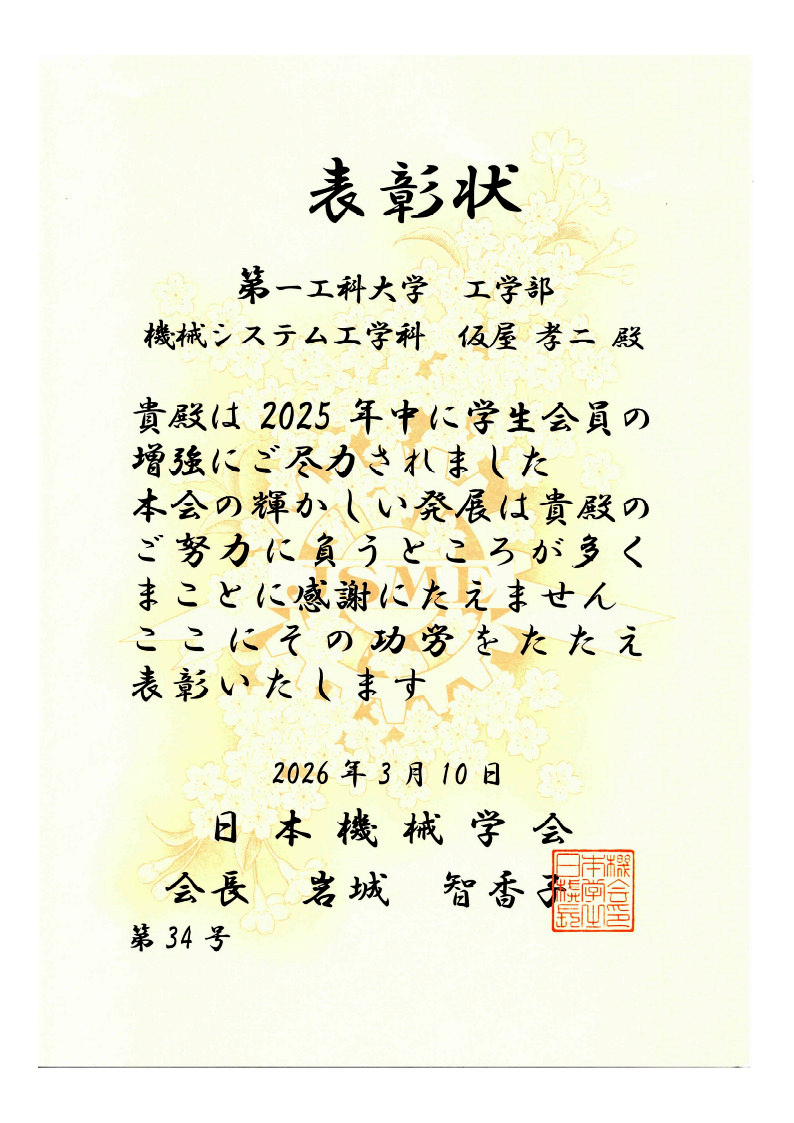 表彰状
第一工科大学　工学部
機械システム工学科　仮屋 孝二 殿
貴殿は 2025 年中に学生会員の
増強にご尽力されました
本会の輝かしい発展は貴殿の
ご努力に負うところが多く
まことに感謝にたえません
ここにその功労をたたえ
表彰いたします
JSME
2026 年 3 月 10 日
日本機械学会
会長　岩城　智香子
第 34 号